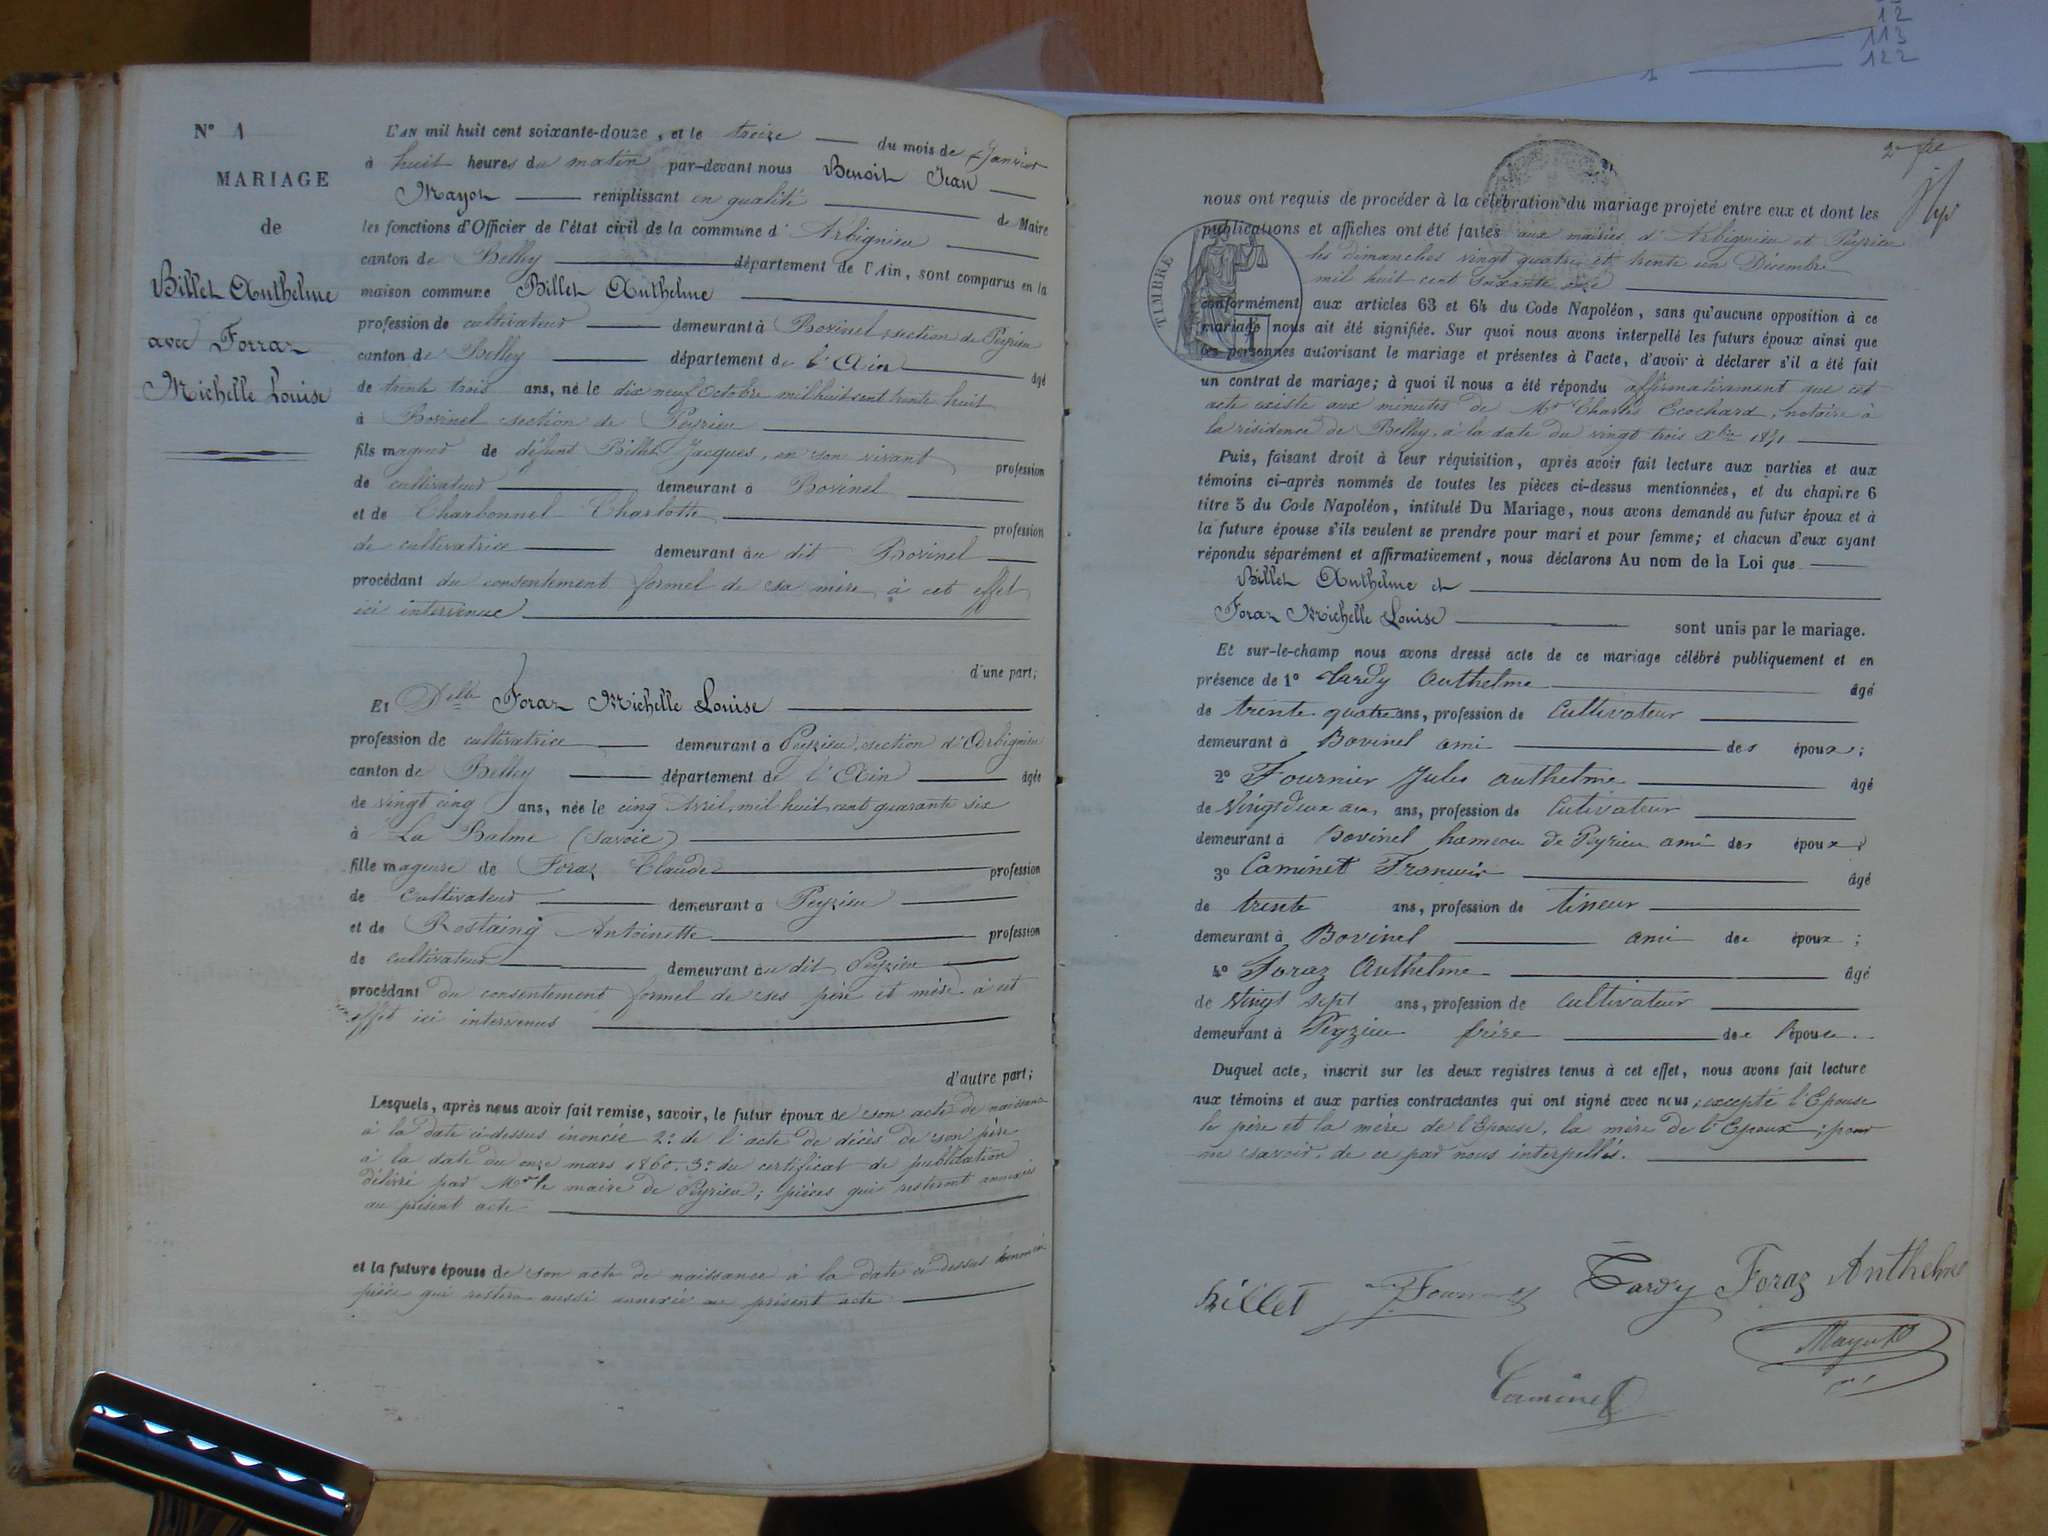 12
113
1 122
N° 1
MARIAGE
de
Billet Anthelme
avec Forraz
Michelle Louise
L'AN mil huit cent soixante-douze, et le treize du mois de Janvier
à huit heures du matin par-devant nous Benoit Jean
Mayot remplissant en qualité de Maire
les fonctions d'Officier de l'état civil de la commune d'Arbignieu
canton de Belley département de l'Ain, sont comparus en la
maison commune Billet Anthelme
profession de cultivateur demeurant à Bovinel, section de Peyzieu
canton de Belley département de l'Ain âgé
de trente trois ans, né le dix neuf Octobre mil huit cent trente huit
à Bovinel section de Peyzieu
fils majeur de défunt Billet Jacques, en son vivant profession
de cultivateur demeurant à Bovinel
et de Charbonnel Charlotte profession
de cultivatrice demeurant au dit Bovinel
procédant du consentement formel de sa mère à cet effet
ici intervenue
d'une part;
Et Delle Foraz Michelle Louise
profession de cultivatrice demeurant à Peyzieu, section d'Arbignieu
canton de Belley département de l'Ain âgée
de vingt cinq ans, née le cinq Avril mil huit cent quarante six
à La Balme (Savoie)
fille majeure de Foraz Claude profession
de cultivateur demeurant à Peyzieu
et de Rostaing Antoinette profession
de cultivateur demeurant au dit Peyzieu
procédant du consentement formel de ses père et mère à cet
effet ici intervenus
d'autre part;
Lesquels, après nous avoir fait remise, savoir, le futur époux de son acte de naissance
à la date ci-dessus énoncée 2° de l'acte de décès de son père
à la date du onze mars 1860. 3° du certificat de publication
délivré par Mr le maire de Peyzieu; pièces qui resteront annexées
au présent acte
et la future épouse de son acte de naissance à la date ci-dessus énoncée
pièce qui restera aussi annexée au présent acte
nous ont requis de procéder à la célébration du mariage projeté entre eux et dont les
publications et affiches ont été faites aux mairies d'Arbignieu et Peyzieu
les dimanches vingt quatre et trente un Décembre
mil huit cent soixante onze
TIMBRE
conformément aux articles 63 et 64 du Code Napoléon, sans qu'aucune opposition à ce
mariage nous ait été signifiée. Sur quoi nous avons interpellé les futurs époux ainsi que
les personnes autorisant le mariage et présentes à l'acte, d'avoir à déclarer s'il a été fait
un contrat de mariage; à quoi il nous a été répondu affirmativement que cet
acte existe aux minutes de Mr Charles Ecochard, notaire à
la résidence de Belley, à la date du vingt trois Xbre 1871
Puis, faisant droit à leur réquisition, après avoir fait lecture aux parties et aux
témoins ci-après nommés de toutes les pièces ci-dessus mentionnées, et du chapitre 6
titre 5 du Code Napoléon, intitulé Du Mariage, nous avons demandé au futur époux et à
la future épouse s'ils veulent se prendre pour mari et pour femme; et chacun d'eux ayant
répondu séparément et affirmativement, nous déclarons Au nom de la Loi que
Billet Anthelme et
Foraz Michelle Louise sont unis par le mariage.
Et sur-le-champ nous avons dressé acte de ce mariage célébré publiquement et en
présence de 1° Tardy Anthelme âgé
de trente quatre ans, profession de Cultivateur
demeurant à Bovinel ami des époux;
2° Fournier Jules Anthelme âgé
de Vingt deux ans, ans, profession de Cutivateur
demeurant à Bovinel hameau de Peyrieu ami des époux
3° Caminet Francois âgé
de trente ans, profession de tineur
demeurant à Bovinel ami des époux;
4° Foraz Anthelme âgé
de Vingt sept ans, profession de cultivateur
demeurant à Peyzieu frère de l'épouse
Duquel acte, inscrit sur les deux registres tenus à cet effet, nous avons fait lecture
aux témoins et aux parties contractantes qui ont signé avec nous, excepté l'Epouse
le père et la mère de l'Epouse, la mère de l'Epoux; pour
ne savoir, de ce par nous interpellés.
billet Fournier Tardy Foraz Anthelme
Mayot
Caminet